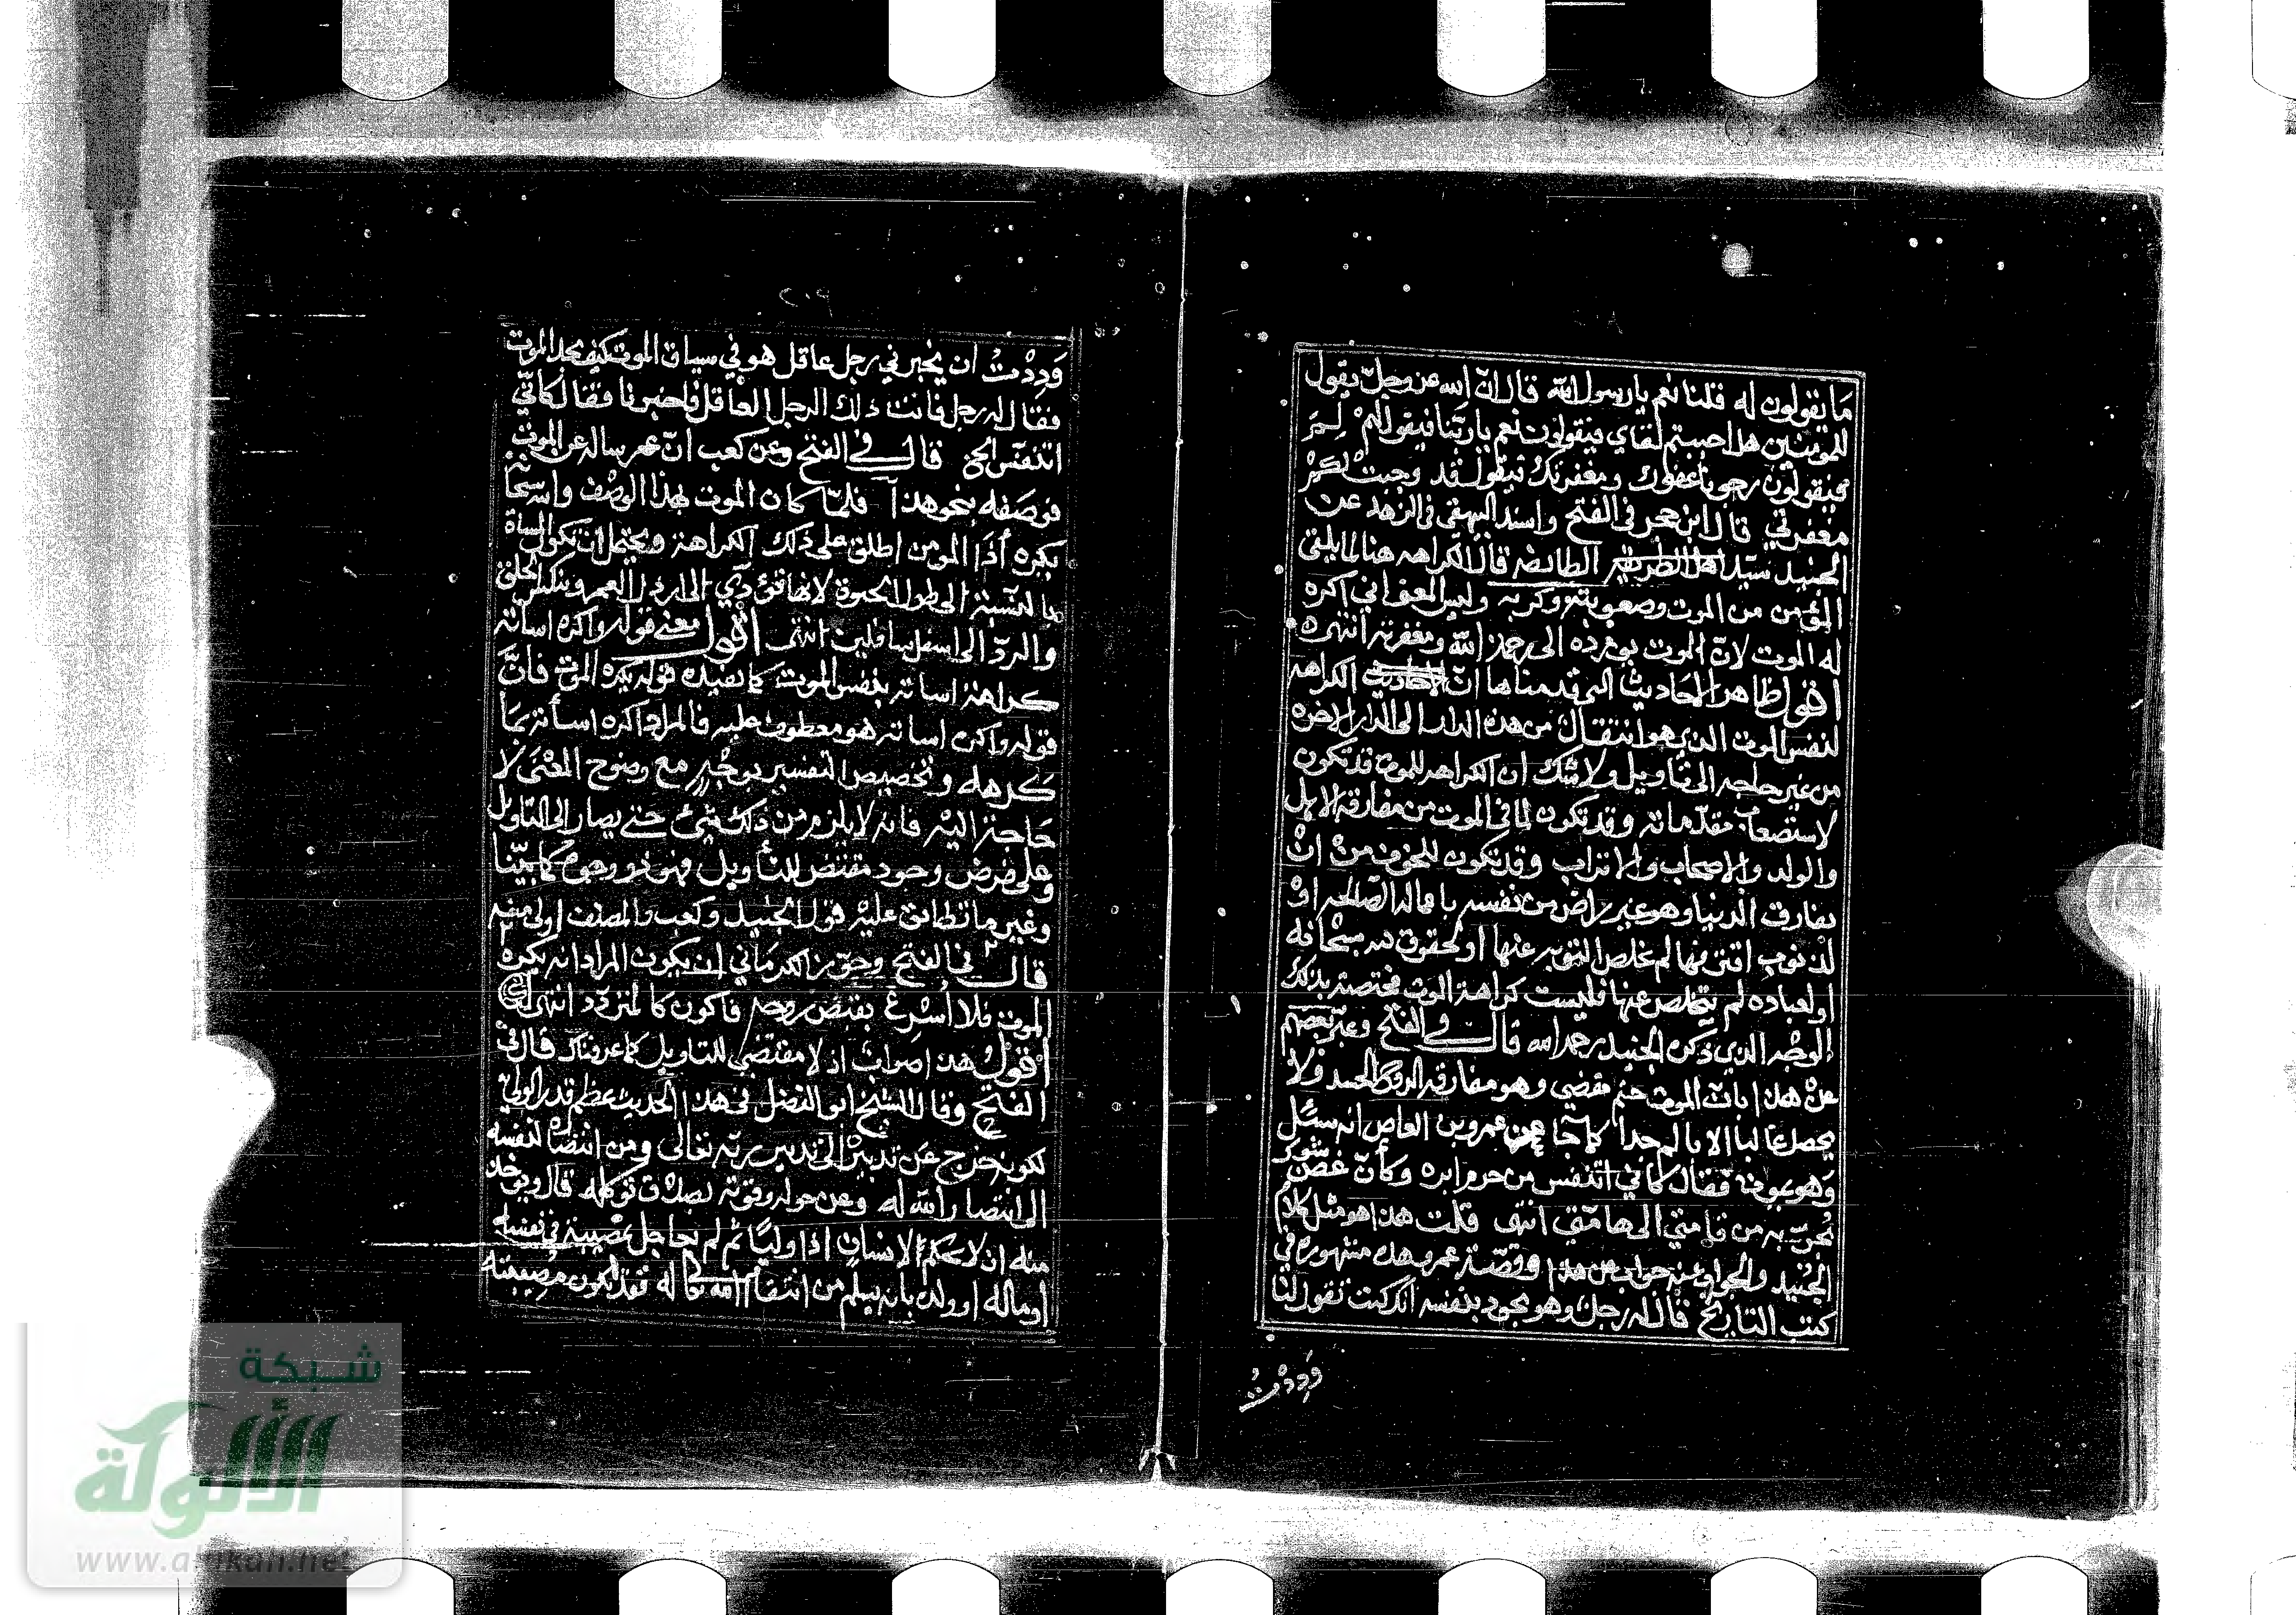 ما يقولون له قلنا نعم يا رسول الله قال ان الله عز وجل يقول
للمؤمنين هل احببتم لقاي فيقولون نعم يا ربنا فيقول لم
فيقولون رجونا عفوك ومغفرتك فيقول قد وجبت لكم
مغفرتي قال ابن حجر في الفتح واسند البيهقي في الزهد عن
الجنيد سيد الطائفة قال الكراهه هنا لما يلقى
المؤمن من الموت وصعوبته وكربه وليس المعنى اني اكره
له الموت لان الموت يورده الى رحمة الله ومغفرته انتهى
اقول ظاهر الاحاديث التي قدمناها ان الكراهه
لنفس الموت الذي هو انتقال من هذه الدار الى الدار الاخره
من غير حاجه الى تاويل ولا شك ان الكراهه للموت قد تكون
لاستصعاب مقدماته وقد تكون لما في الموت من مفارقه الاهل
والولد والاصحاب والاتراب وقد تكون للخوف من ان
يفارق الدنيا وهو غير راض من نفسه باعماله الصالحه او
لذنوب اقترفها لم يخلص التوبه عنها او لحقوق لله سبحانه
او لعباده لم يتخلص عنها فليست كراهة الموت مختصة بذلك
الوجه الذي ذكره الجنيد رحمه الله قال في الفتح وعبر بعضهم
عن هذا بان الموت حتم مقضي وهو مفارقه الروح الجسد ولا
يحصل غالبا الا بالم جدا كما جا عن عمرو بن العاص انه سئل
وهو يموت فقال كاني اتنفس من خرم ابره وكان غصن شوك
يجر به من قامتي الى هامتي انتهى قلت هذا هو مثل كلام
الجنيد والجواب عنه جواب عن هذا وقصة عمرو هذه مشهورة في
كتب التاريخ قال له رجل وهو يجود بنفسه انك كنت تقول لنا
وددت
٢٠٩
وددت ان يخبرني رجل عاقل هو في سياق الموت كيف يجد الموت
فقال له رجل فانت ذلك الرجل العاقل فاخبرنا فقال كاني
اتنفس الخ قال في الفتح وعن كعب ان عمر ساله عن الموت
فوصفه بنحو هذا فلما كان الموت بهذا الوصف والله
يكره اذا المومن اطلق على ذلك الكراهة ويحتمل ان تكون المساة
بالنسبة الى طول الحيوة لانها تؤدي الى ارذل العمر وتنكيس الخلق
والرد الى اسفل سافلين انتهى اقول معنى قوله واكره اساته
كراهة اساته بنفس الموت كما يفيده قوله يكره الموت فان
قوله واكره اساته هو معطوف عليه فالمراد اكره اسأته بما
كرهه وتخصيص التفسير بوجه مع وضوح المعنى لا
حاجة اليه فانه لا يلزم من ذلك شيء حتى يصار الى التاويل
وعلى فرض وجود مقتض للتأويل فهو ذو وجوه كما بينا
وغير ما تطابق عليه قول الجنيد وكعب والمصنف اولى منه
قال في الفتح وجوز الكرماني ان يكون المراد انه يكره
الموت فلا اسرع بقبض روحه فاكون كالمتردد انتهى
اقول هذا صواب اذ لا مقتضي للتاويل كما عرفناك قال في
الفتح وقال الشيخ ابو الفضل في هذا الحديث عظم قدر الولي
لكونه خرج عن تدبيره الى تدبير ربه تعالى ومن انتصاره لنفسه
الى انتصار الله له وعن حوله وقوته بصدق توكله قال ويوخذ
منه ان لا يحكم لانسان اذا وليا ثم لم يعاجل بمصيبة في نفسه
او ماله او ولده بانه يسلم من انتقام الله تعالى له فقد تكون مصيبته
شبكة
الألوكة
www.alukah.net